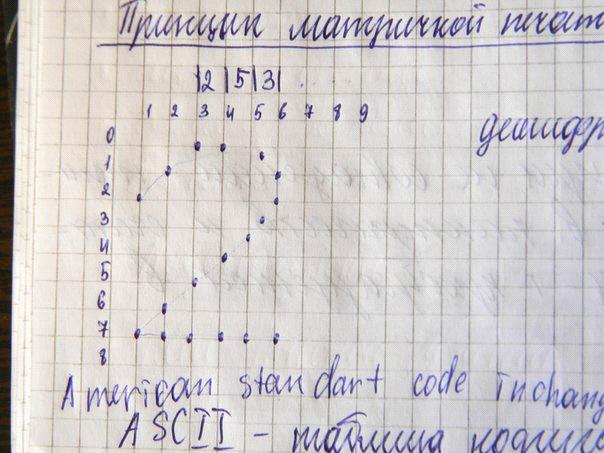 Принцип матричной печат
|2|5|3| . . .
1 2 3 4 5 6 7 8 9
дешифр
0
1
2
3
4
5
6
7
8
American standart code inchang
ASCII - таблица кодиро